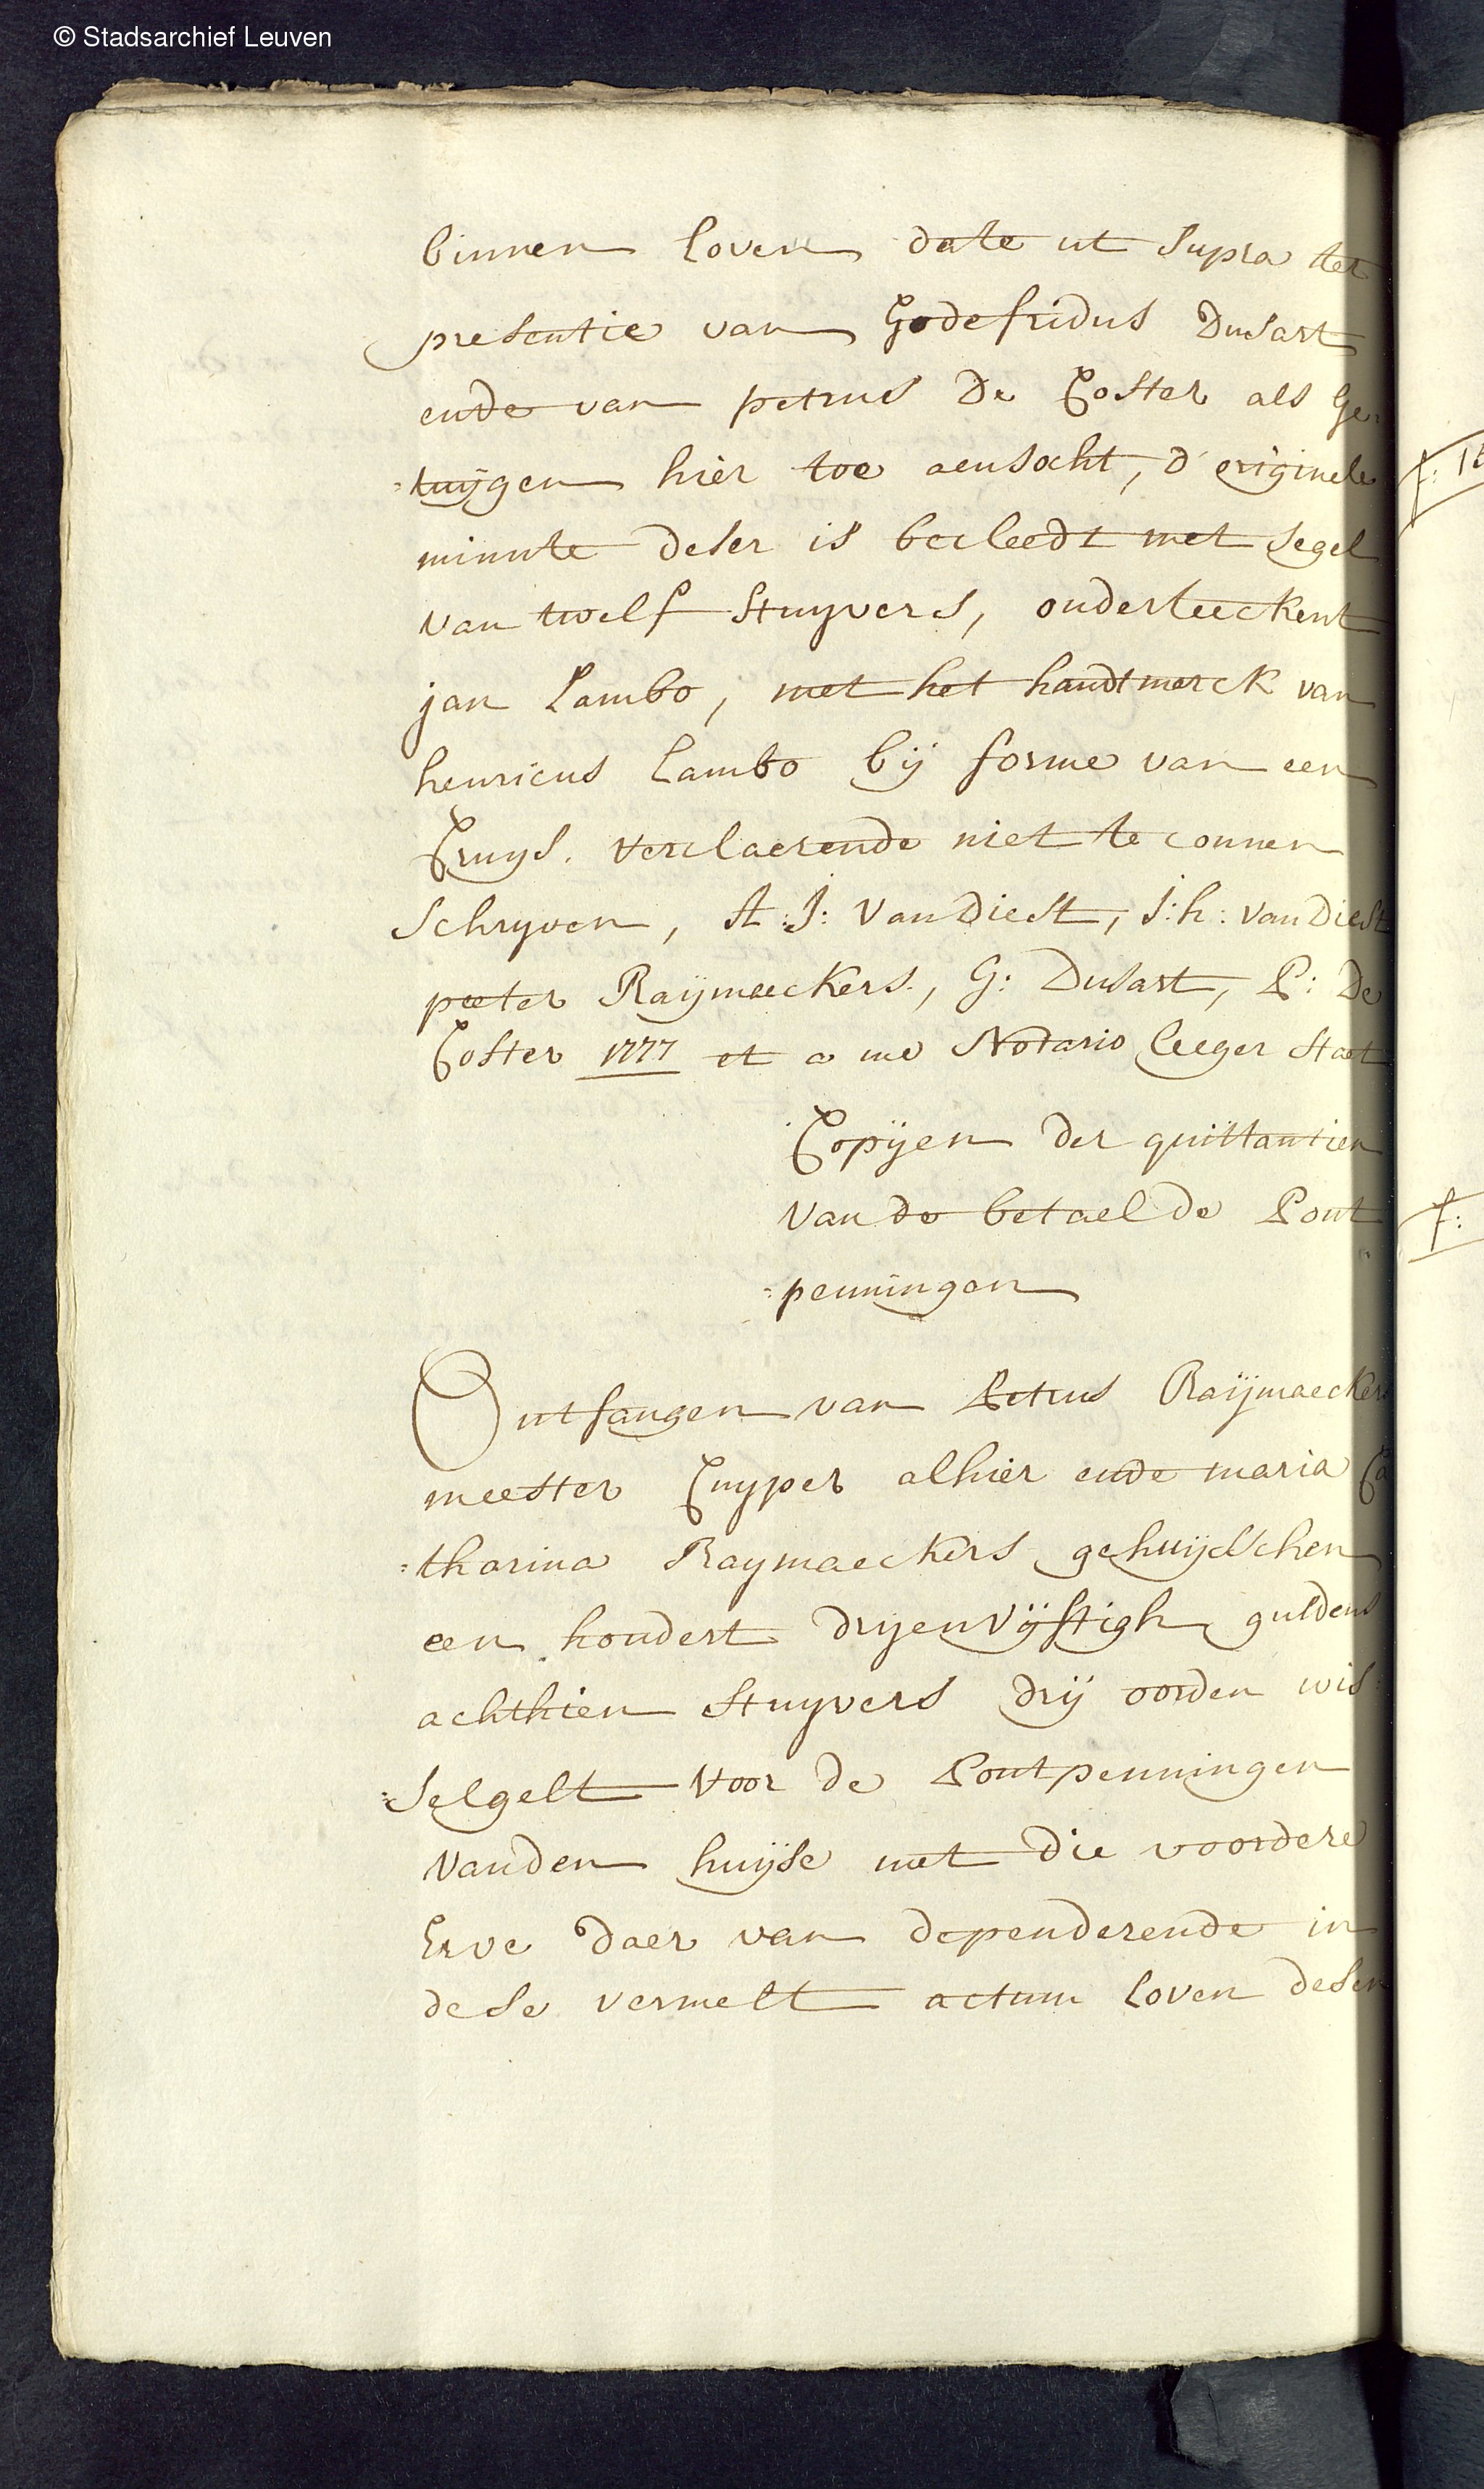 © Stadsarchief Leuven
binnen loven date ut supra ter
presentie van Godefridus Dusart
ende van petrus De Coster als Ge
:tuijgen hier toe aensocht, d'originele
minute deser is becleedt met segel
van twelf stuyvers, onderteeckent
jan Lambo, met het handtmerck van
henricus Lambo bij forme van een
Cruys. verclaerende niet te connen
schryven, A: J: Van Diest, J: h: van Diest
peeter Raijmaeckers., G: Dusart, P: De
Coster 1777 et a me Notario leeger staet
Copijen der quittantien
van de betaelde Pont
:penningen
Ontfangen van Petrus Raijmaeckers
meester Cuyper alhier ende maria Ca
:tharina Raymaeckers gehuijsschen
een hondert dryenvijftigh guldens
achthien stuyvers drij oorden wis:
:selgelt voor de Pontpenningen
vanden huijse met die voordere
Erve daer van dependerende in
dese vermelt actum loven desen
f:
f: